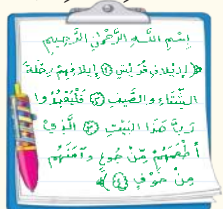 بِسْمِ اللَّهِ الرَّحْمَٰنِ الرَّحِيمِ
﴿ لِإِيلَافِ قُرَيْشٍ ١ إِيلَافِهِمْ رِحْلَةَ
الشِّتَاءِ وَالصَّيْفِ ٢ فَلْيَعْبُدُوا
رَبَّ هَذَا الْبَيْتِ ٣ الَّذِي
أَطْعَمَهُمْ مِّنْ جُوعٍ وَآمَنَهُمْ
مِنْ خَوْفٍ ٤ ﴾